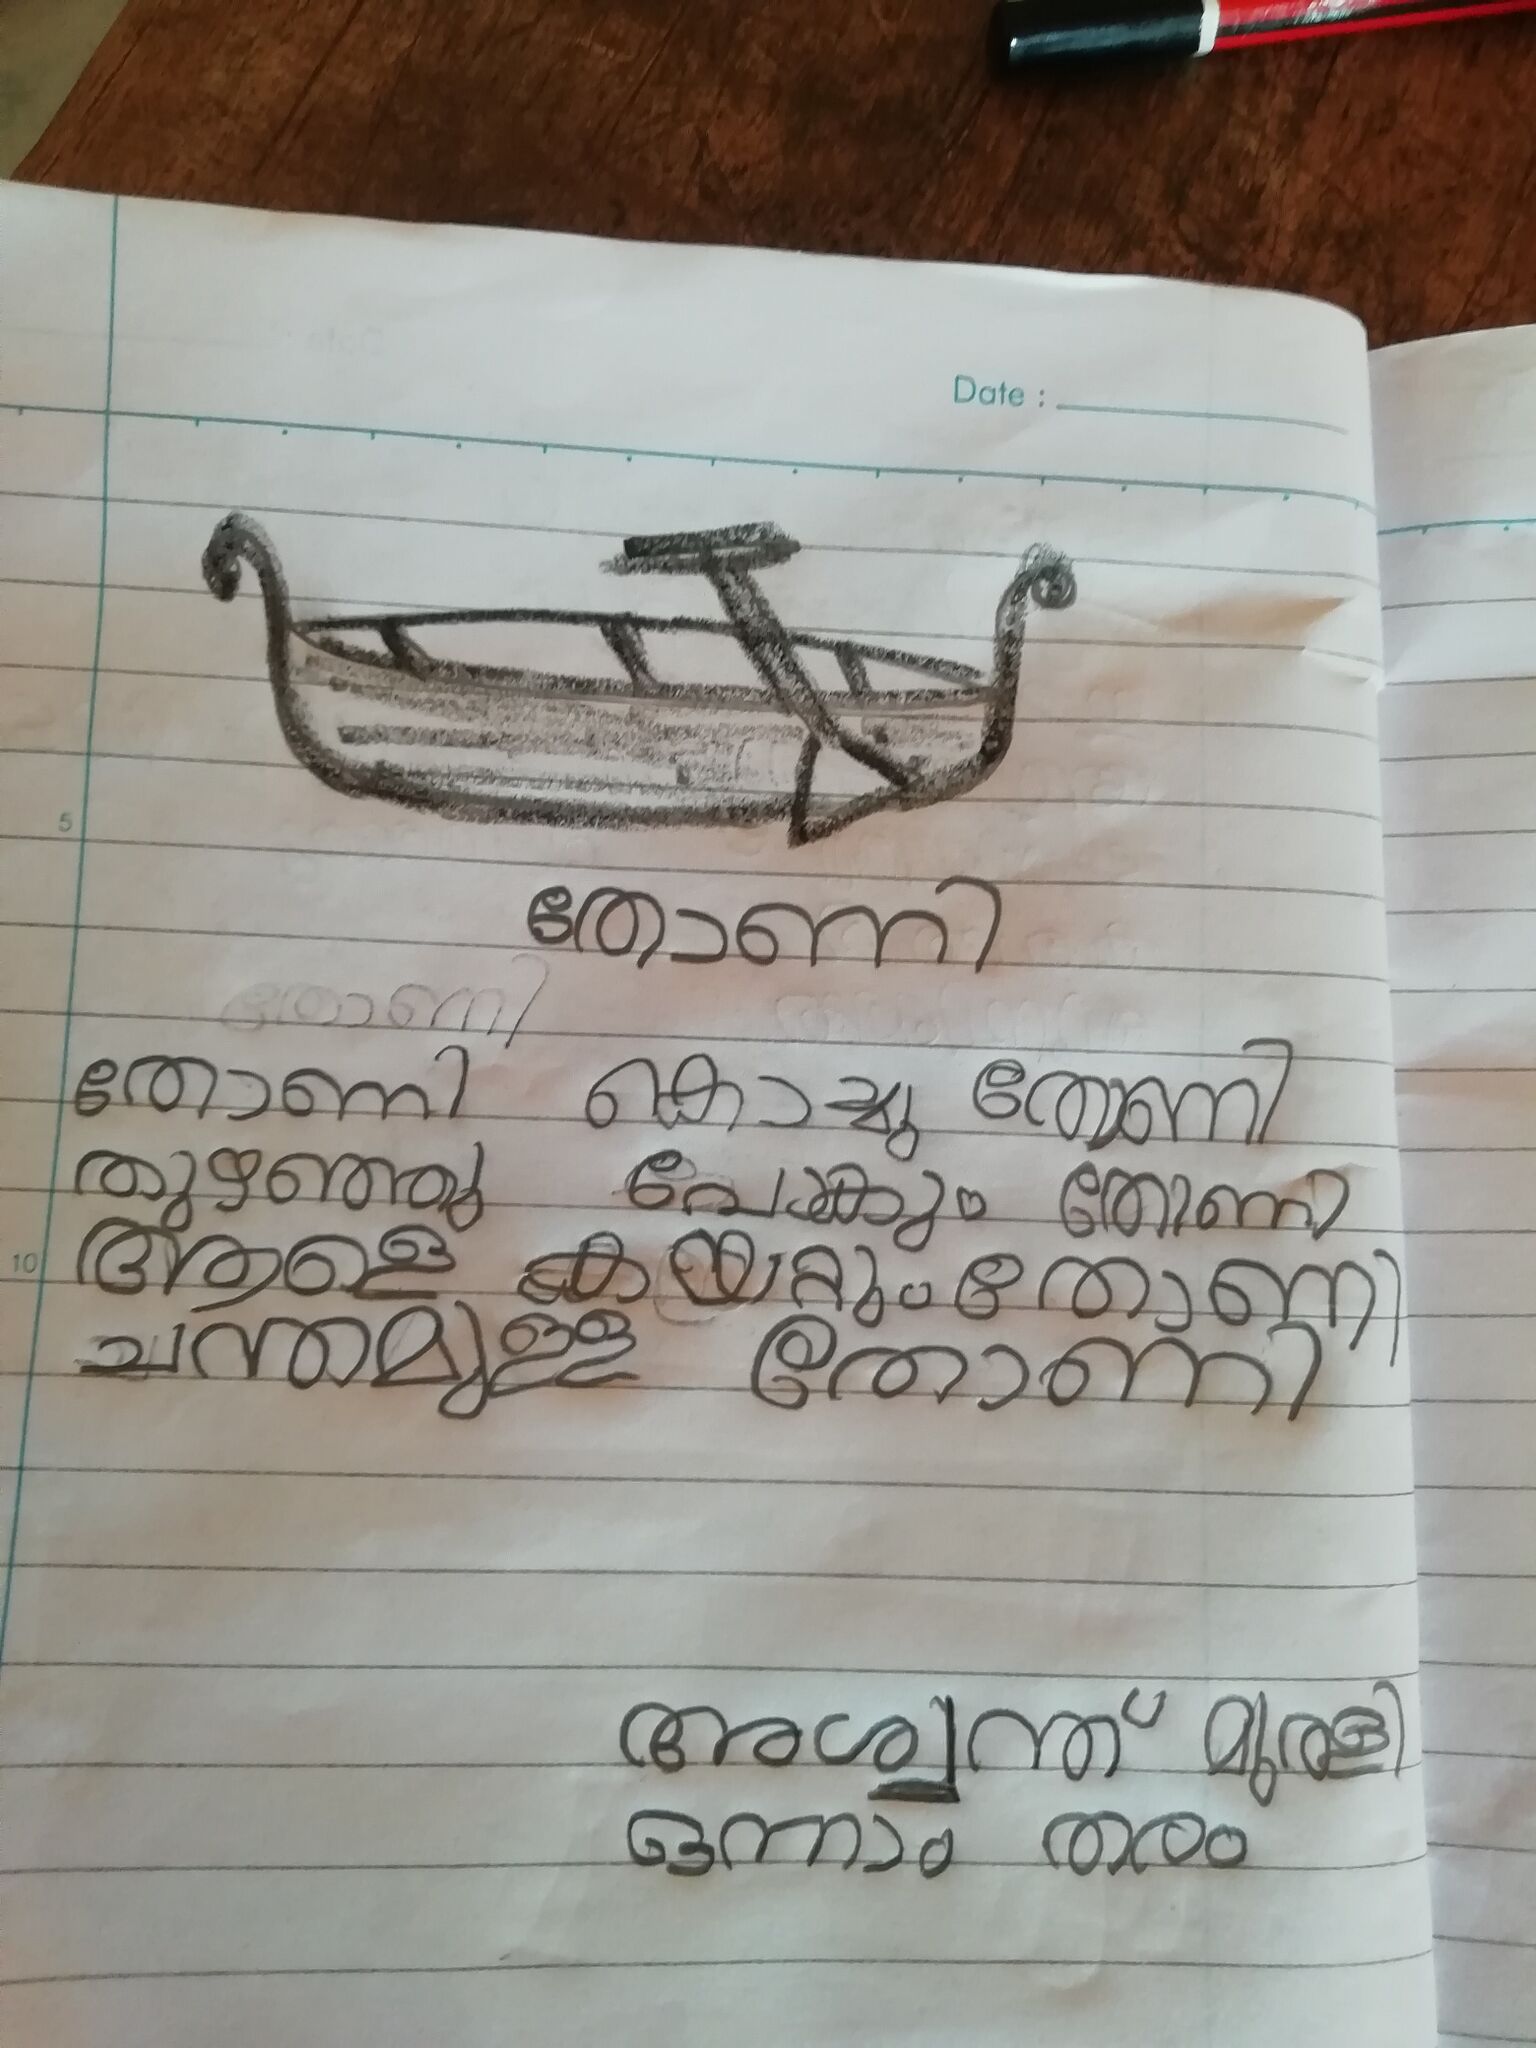 Date :
തോണി
തോണി
തോണി കൊച്ചു തോണി
തുഴഞ്ഞു പോകും തോണി
ആളെ കയറ്റും തോണി
ചന്തമുള്ള തോണി
അശ്വന്ത് മുരളി
ഒന്നാം തരം
5
10